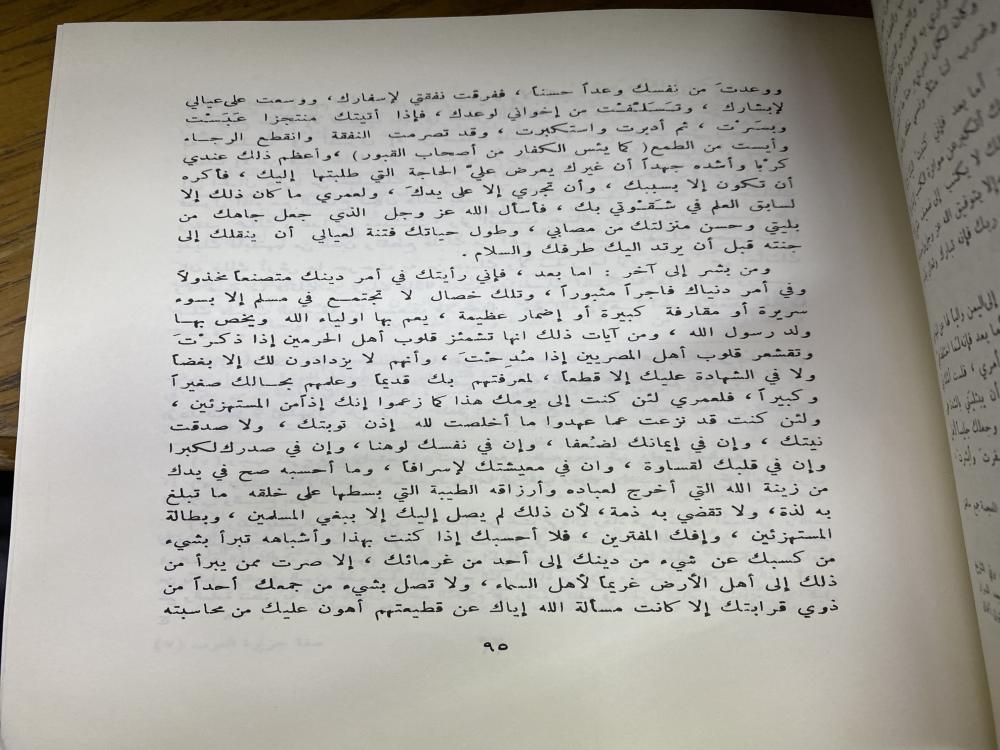 ووعدتَ من نفسك وعداً حسناً ، ففرقت نفقتي لإسفارك، ووسعت على عيالي
لإبشارك ، وتَسَلَّفْت من إخواني لوعدك، فإذا أتيتك منتجزا عَبَسْت
وبسَرْت ، ثم أدبرت واستكبرت ، وقد تصرمت النفقة وانقطع الرجاء
وأيست من الطمع( كما يئس الكفار من أصحاب القبور) ،وأعظم ذلك عندي
كربًا وأشده جهداً أن غيرك يعرض عليّ الحاجة التي طلبتها إليك ، فأكره
أن تكون إلا بسببك ، وأن تجري إلا على يدكَ ، ولعمري ما كان ذلك إلا
لسابق العلم في شَقْوتي بك ، فأسأل الله عز وجل الذي جعل جاهك من
بليتي وحسن منزلتك من مصابي ، وطول حياتك فتنة لعيالي أن ينقلك إلى
جنته قبل أن يرتد اليك طرفك والسلام .
ومن بشر إلى آخر : اما بعد ، فإني رأيتك في أمر دينك متصنعاً مخذولاً
وفي أمر دنياك فاجراً مثبوراً ، وتلك خصال لا تجتمع في مسلم إلا بسوء
سريرة أو مقارفة كبيرة أو إضمار عظيمة ، يعم بها اولياء الله ويخص بها
ولد رسول الله ، ومن آيات ذلك انها تشمئز قلوب أهل الحرمين إذا ذكرْتَ
وتقشعر قلوب أهل المصريين إذا مُدِحْتَ ، وأنهم لا يزدادون لك إلا بغضاً
ولا في الشهادة عليك إلا قطعاً، لمعرفتهم بك قديماً وعلمهم بحالك صغيراً
وكبيراً ، فلعمري لئن كنت إلى يومك هذا كما زعموا إنك إذاً من المستهزئين ،
ولئن كنت قد نزعت عما عهدوا ما أخلصت لله إذن توبتك ، ولا صدقت
نيتك ، وإن في إيمانك لضُعفا ، وإن في نفسك لوهنا ، وإن في صدرك لكبرا
وإن في قلبك لقساوة ، وان في معيشتك لإسرافاً ، وما أحسبه صح في يدك
من زينة الله التي أخرج لعباده وأرزاقه الطيبة التي بسطها على خلقه ما تبلغ
به لذة، ولا تقضي به ذمة، لأن ذلك لم يصل إليك إلا ببغي المسلمين ، وبطالة
المستهزئين ، وإفك المفترين ، فلا أحسبك إذا كنت بهذا وأشباهه تبرأ بشيء
من كسبك عن شيء من دينك إلى أحد من غرمائك ، إلا صرت ممن يبرأ من
ذلك إلى أهل الأرض غريماً لأهل السماء، ولا تصل بشيء من جمعك أحداً من
ذوي قرابتك إلا كانت مسألة الله إياك عن قطيعتهم أهون عليك من محاسبته
٩٥